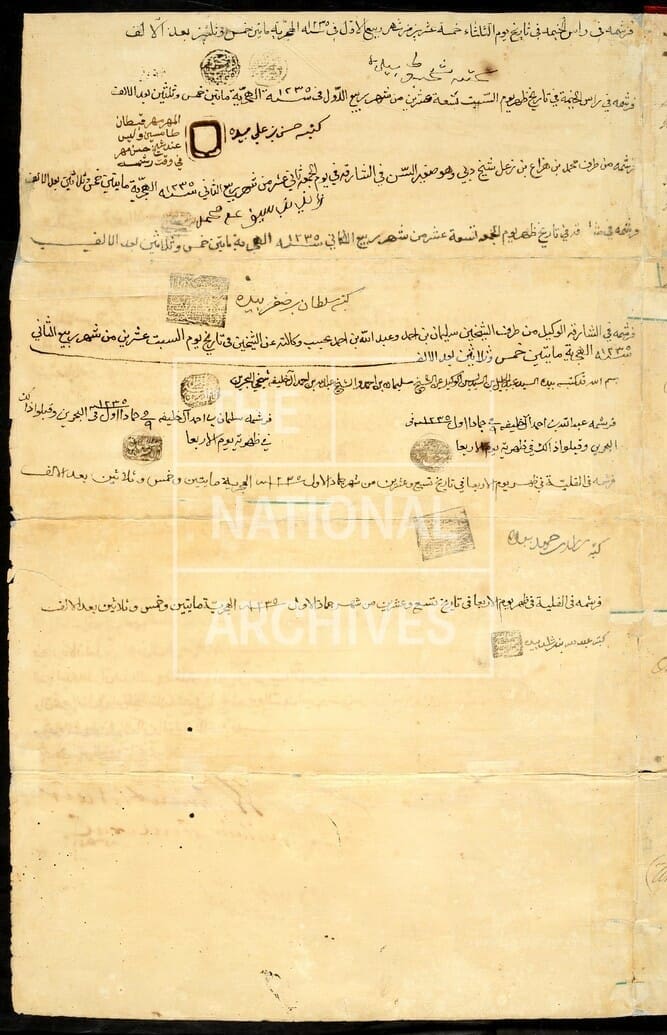 فرشمه في راس الخيمه في تاريخ يوم الثلثاء خمسة عشرين من شهر ربيع الاول في سنة ١٢٣٥ الهجرية مايتين خمس وثلثين بعد الالف
فرشمه في راس الخيمة في تاريخ ظهر يوم السبت تسعة عشرين من شهر ربيع الاول في سنة ١٢٣٥ الهجرية مايتين خمس وثلثين بعد الالف
كتبه حسن بن علي بيده
المهر مهر قبطان
طامسين وليس
عند حسن مهر
في وقت رشمه
فرشمه من طرف محمد بن هزاع بن زعل شيخ دبي وهو صغير السن في الشارقه في يوم الجمعه ثاني عشر من شهر ربيع الثاني سنة ١٢٣٥ الهجرية مايتين خمس وثلاثين بعد الالف
في تاريخ ظهر يوم الجمعه تسعة عشر من شهر ربيع الثاني سنة ١٢٣٥ الهجرية مايتين خمس وثلاثين بعد الالف
كتبه سلطان بن صقر بيده
فرشمه في الشارقه الوكيل من طرف الشيخين سليمان بن احمد وعبد الله بن احمد بحسب وكالته عن الشيخين في تاريخ يوم السبت عشرين من شهر ربيع الثاني
سنة ١٢٣٥ الهجرية مايتين خمس وثلاثين بعد الالف
بسم الله قد كتب بيده السيد عبد الجليل بن السيد ياسين الوكيل عن الشيخ سليمان بن احمد والشيخ عبد الله بن احمد آل خليفه شيخي البحرين
فرشمه عبد الله بن احمد آل خليفه في ٩ جمادا اول ١٢٣٥ في
البحرين وقبلوا ذاك في ظهرية يوم الاربعا
فرشمه سلمان بن احمد آل خليفه في ٩ جمادا اول ١٢٣٥ في البحرين وقبلوا ذاك
في ظهرية يوم الاربعا
فرشمه في الفلية في ظهر يوم الاربعا في تاريخ تسع وعشرين من شهر جماد الاول سنة ١٢٣٥ الهجرية مايتين وخمس وثلاثين بعد الالف
كتبه راشد بن حميد بيده
فرشمه في الفلية في ظهر يوم الاربعا في تاريخ تسع وعشرين من شهر جماد الاول سنة ١٢٣٥ الهجرية مايتين وخمس وثلاثين بعد الالف
كتبه عبد الله بن راشد بيده
THE
NATIONAL
ARCHIVES